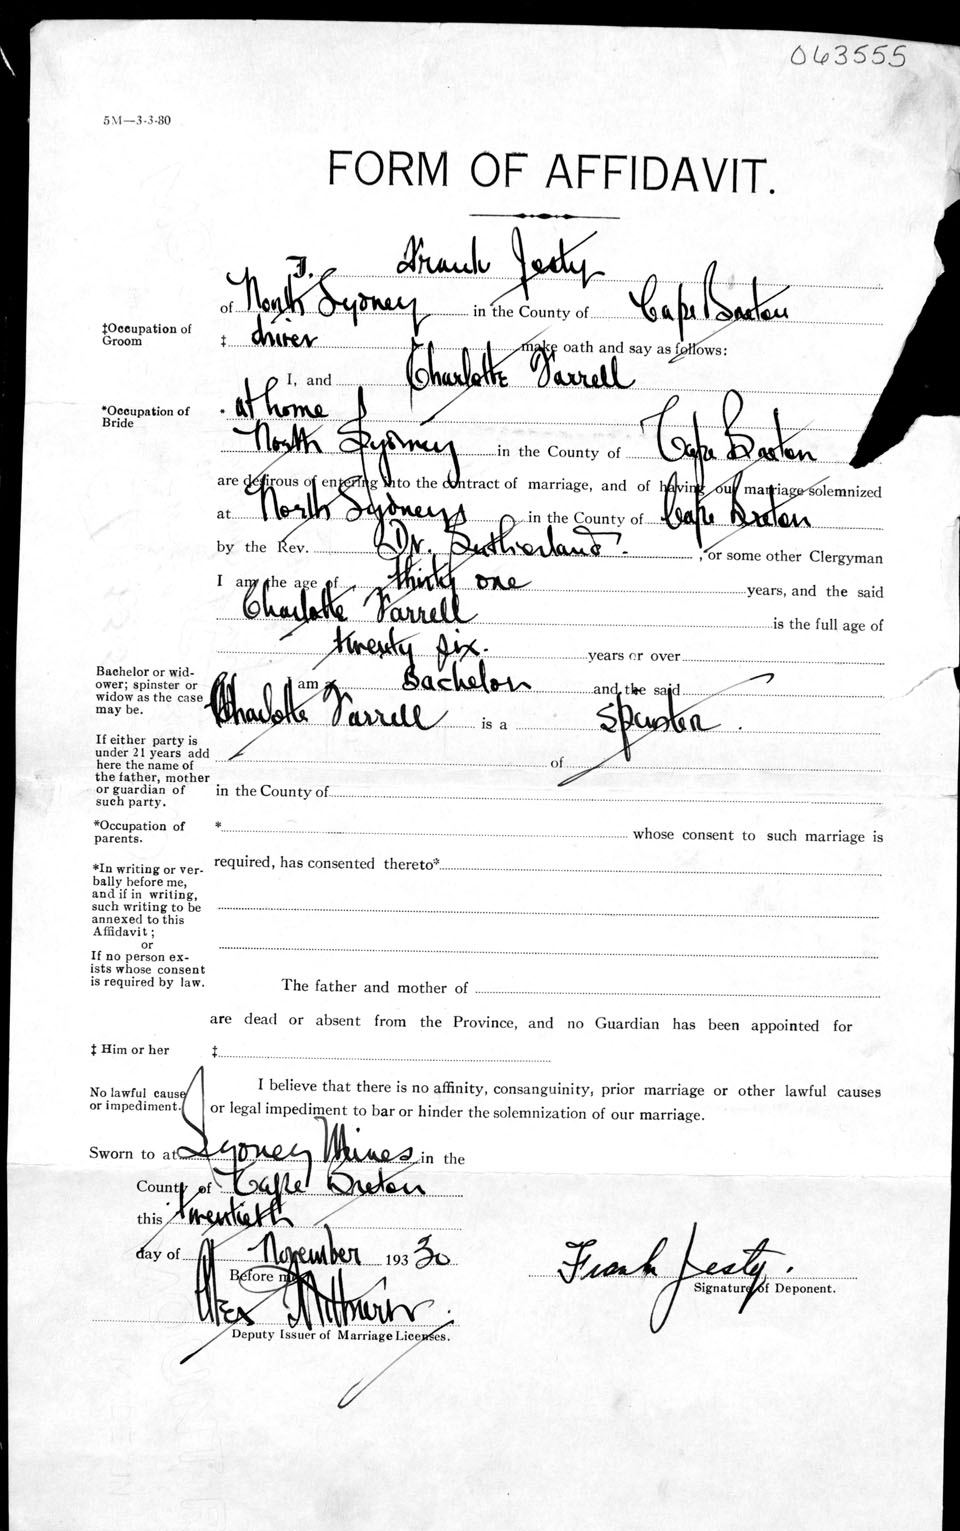 063555
5M—3-3-80
FORM OF AFFIDAVIT.
I, Frank Jesty
of North Sydney in the County of Cape Breton
‡Occupation of Groom
‡ driver make oath and say as follows:
I, and Charlotte Farrell
*Occupation of Bride
* at home
North Sydney in the County of Cape Breton
are desirous of entering into the contract of marriage, and of having our marriage solemnized
at North Sydney in the County of Cape Breton
by the Rev. Dr. Sutherland , or some other Clergyman
I am the age of thirty one years, and the said
Charlotte Farrell is the full age of
twenty six. years or over
Bachelor or widower; spinster or widow as the case may be.
I am a Bachelor and the said
Charlotte Farrell is a Spinster.
If either party is under 21 years add here the name of the father, mother or guardian of such party.
of
in the County of
*Occupation of parents.
* whose consent to such marriage is
required, has consented thereto*
*In writing or verbally before me, and if in writing, such writing to be annexed to this Affidavit;
or
If no person exists whose consent is required by law.
The father and mother of
are dead or absent from the Province, and no Guardian has been appointed for
‡ Him or her ‡
No lawful cause or impediment.
I believe that there is no affinity, consanguinity, prior marriage or other lawful causes
or legal impediment to bar or hinder the solemnization of our marriage.
Sworn to at Sydney Mines in the
County of Cape Breton
this twentieth
day of November 193 30
Before me
Alex
Deputy Issuer of Marriage Licenses.
Frank Jesty.
Signature of Deponent.